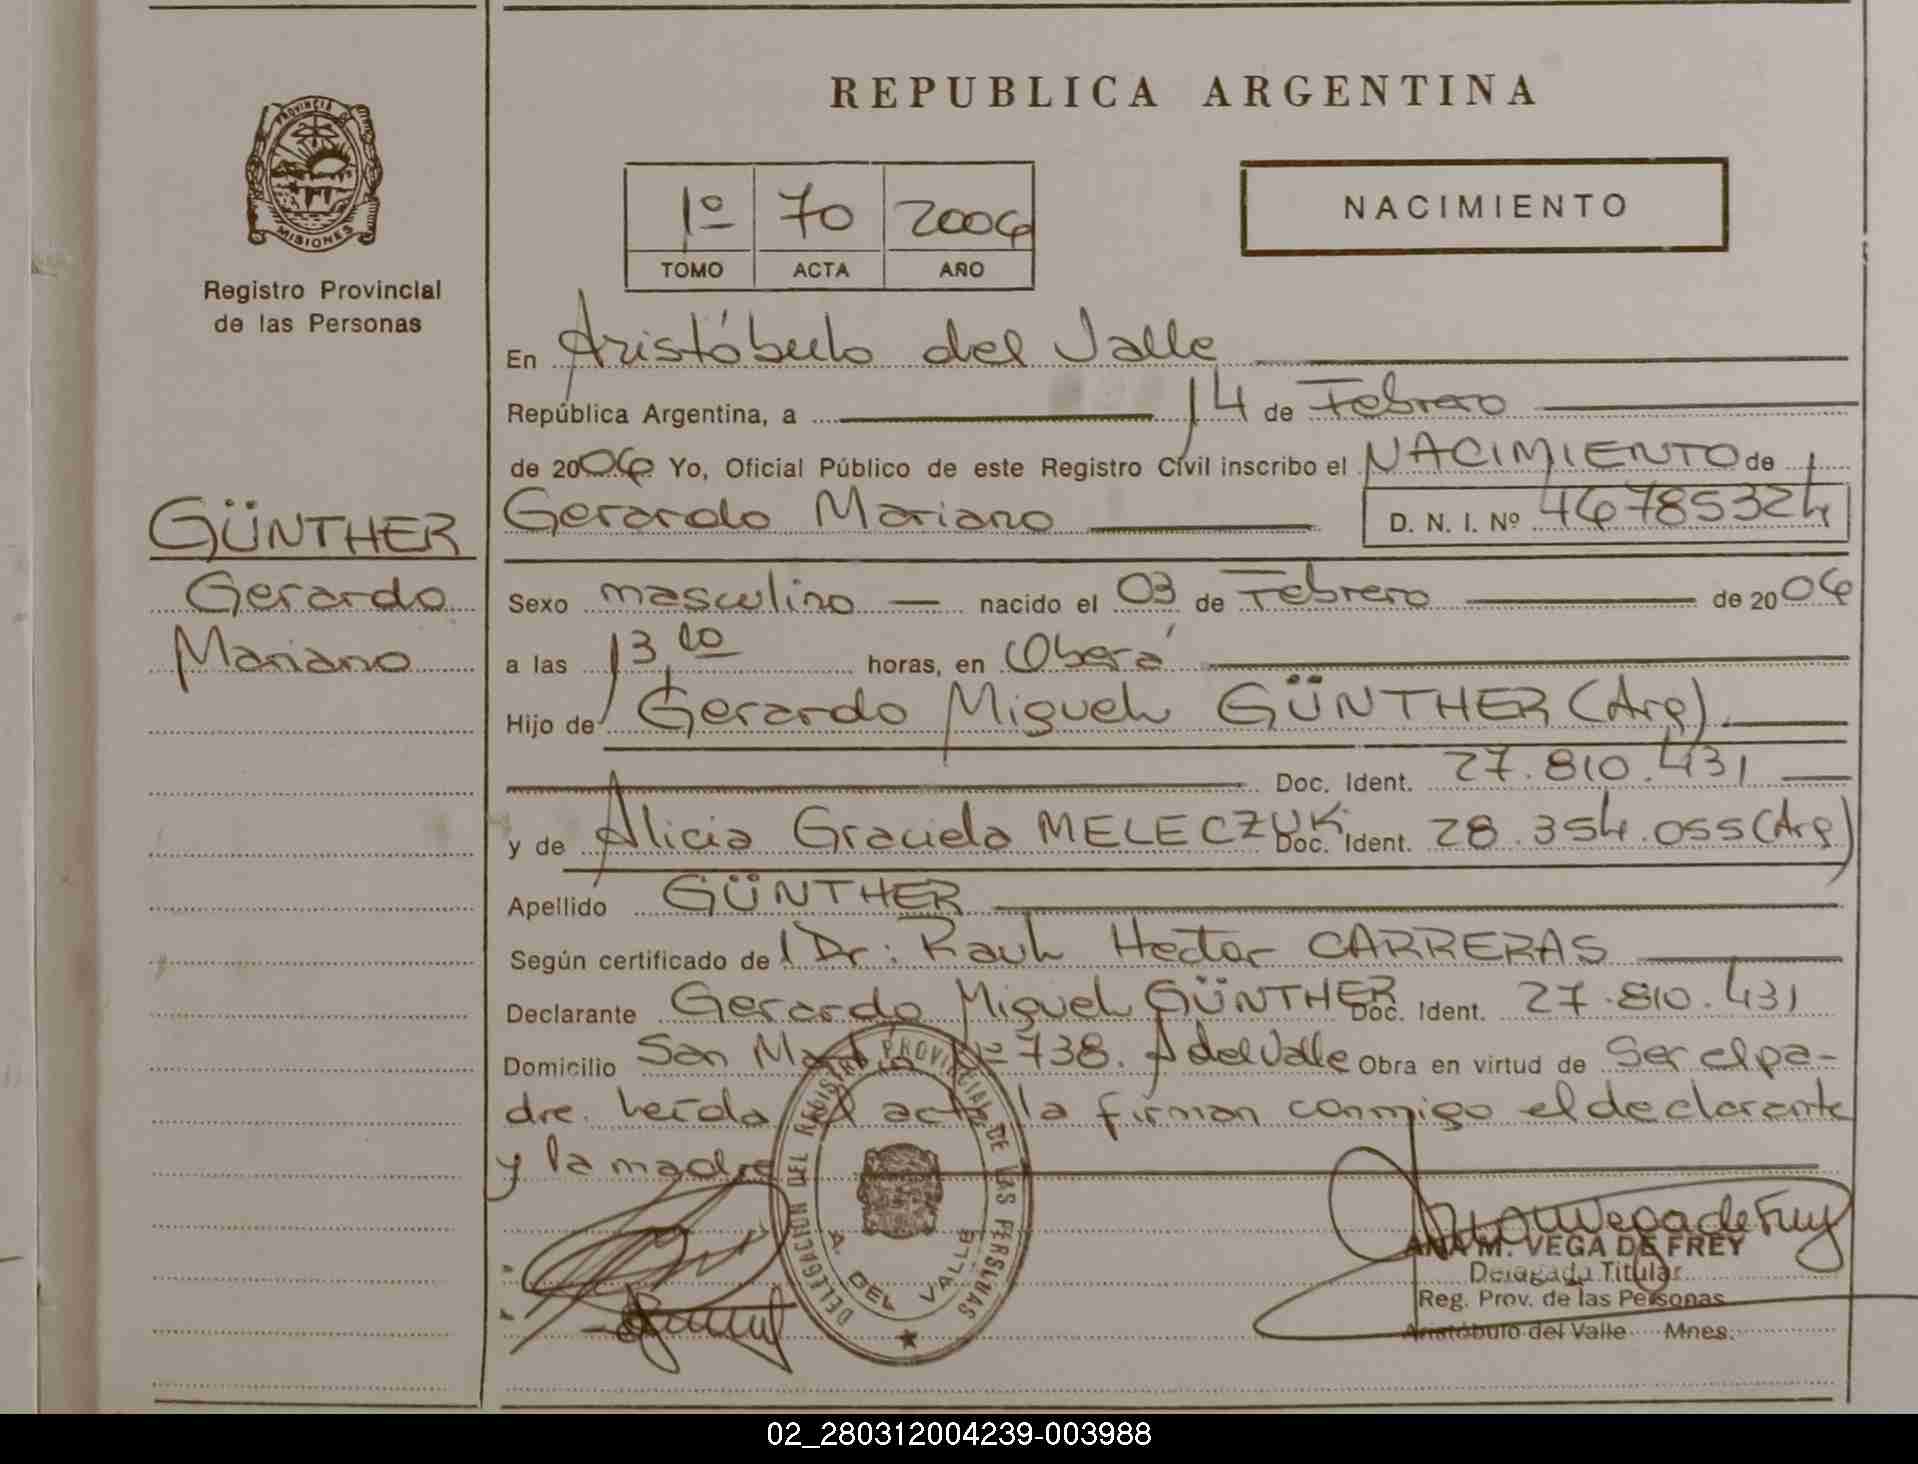 REPUBLICA ARGENTINA
PROVINCIA DE
MISIONES
Registro Provincial
de las Personas
1º 70 2006
TOMO ACTA AÑO
NACIMIENTO
En Aristóbulo del Valle
República Argentina, a 14 de Febrero
de 2006 Yo, Oficial Público de este Registro Civil inscribo el NACIMIENTO de
GÜNTHER
Gerardo
Mariano
Gerardo Mariano D. N. I. Nº 46785324
Sexo masculino nacido el 03 de Febrero de 2006
a las 13,10 horas, en Oberá
Hijo de Gerardo Miguel GÜNTHER (Arg).
Doc. Ident. 27.810.431
y de Alicia Graciela MELECZUK Doc. Ident. 28.354.055 (Arg)
Apellido GÜNTHER
Según certificado del Dr: Raul Hector CARRERAS
Declarante Gerardo Miguel GÜNTHER Doc. Ident. 27.810.431
Domicilio San Martin Nº 738. A del Valle Obra en virtud de Ser el pa-
dre. Leída el acta la firman conmigo el declarante
y la madre
DELEGACION DEL REGISTRO PROVINCIAL DE LAS PERSONAS
A. DEL VALLE
ANA M. VEGA DE FREY
Delegada Titular
Reg. Prov. de las Personas
Aristóbulo del Valle Mnes.
02_280312004239-003988